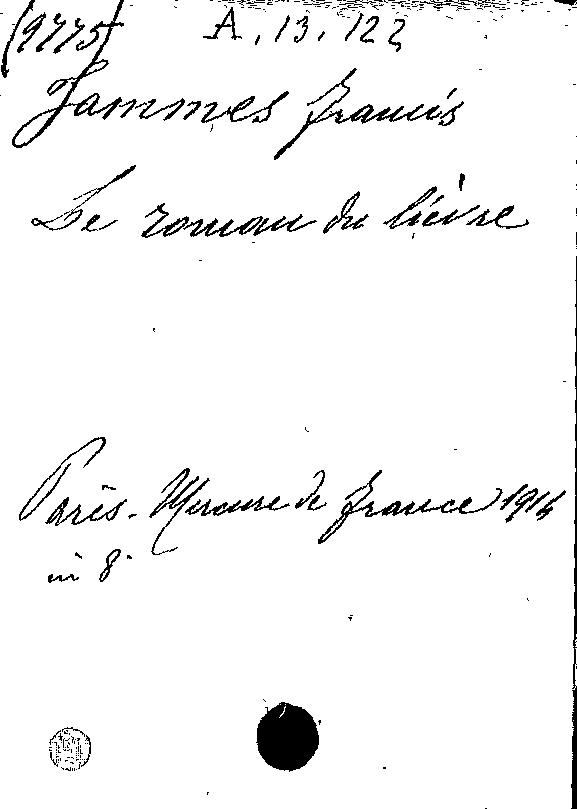 (9775) A. 13. 122
Jammes Francis
Le roman du lièvre
Paris. Mercure de France 1914
in 8°